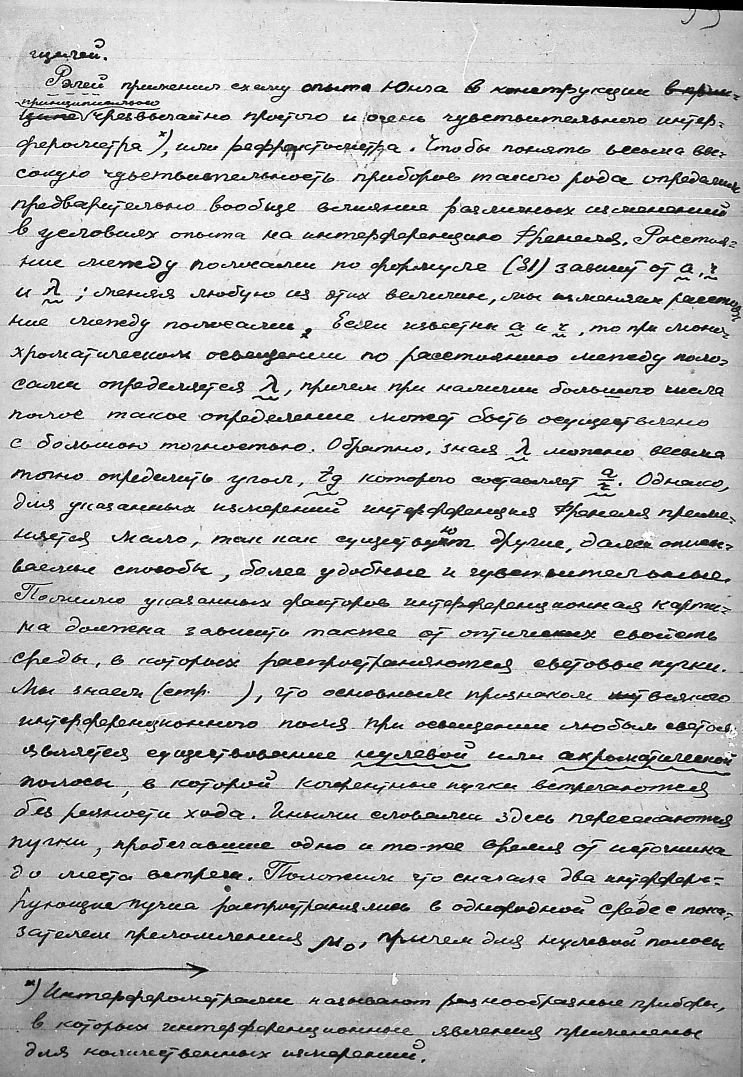 щелей.
Рэлей применил схему опыта Юнга в конструкции в прин-
принципиального
ципе чрезвычайно простого и очень чувствительного интер-
ферометра х), или рефрактометра. Чтобы понять весьма вы-
сокую чувствительность приборов такого рода определим
предварительно вообще влияние различных изменений
в условиях опыта на интерференцию Френеля. Расстоя-
ние между полосами по формуле (31) зависит от a, r
и λ; меняя любую из этих величин, мы изменяем расстоя-
ние между полосами. Если известны a и r, то при моно-
хроматическом освещении по расстоянию между поло-
сами определяется λ, причем при наличии большого числа
полос такое определение может быть осуществлено
с большою точностью. Обратно, зная λ можно весьма
точно определить угол, tg которого составляет a/r. Однако,
для указанных измерений интерференция Френеля приме-
няется мало, так как существуют другие, далее описы-
ваемые способы, более удобные и чувствительные.
Помимо указанных факторов интерференционная карти-
на должна зависить также от оптических свойств
среды, в которых распространяются световые пучки.
Мы знаем (стр. ), что основным признаком всякого
интерференционного поля при освещении любым светом
является существование нулевой или ахроматической
полосы, в которой когерентные пучки встречаются
без разности хода. Иными словами здесь пересекаются
пучки, пробегавшие одно и то-же время от источника
до места встречи. Положим что сначала два интерфери-
рующие пучка распространялись в однородной среде с пока-
зателем преломления μ₀, причем для нулевой полосы
х) Интерферометрами называют разнообразные приборы,
в которых интерференционные явления применены
для количественных измерений.